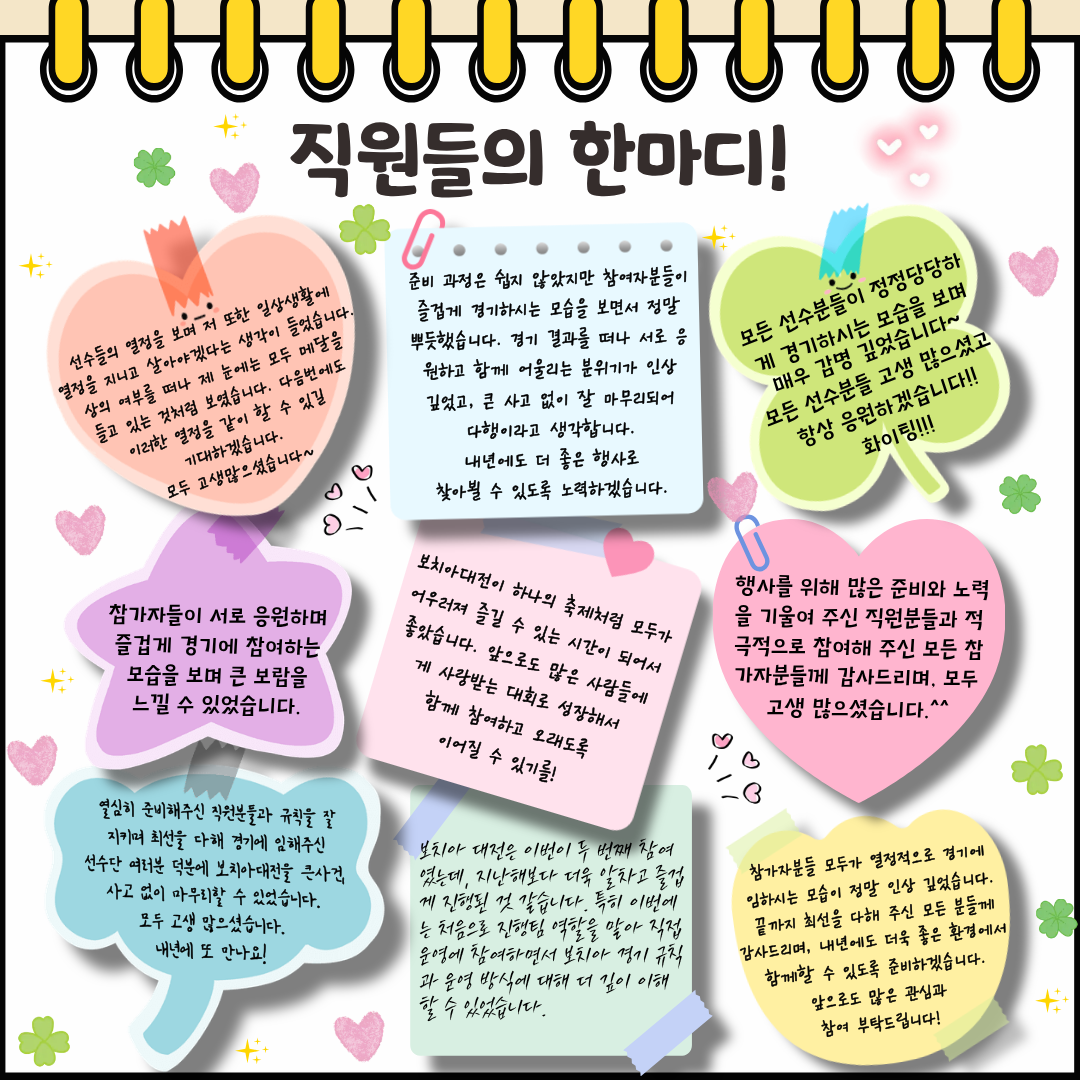 직원들의 한마디!
선수들의 열정을 보며 저 또한 일상생활에
열정을 지니고 살아야겠다는 생각이 들었습니다.
상의 여부를 떠나 제 눈에는 모두 메달을
들고 있는 것처럼 보였습니다. 다음번에도
이러한 열정을 같이 할 수 있길
기대하겠습니다.
모두 고생많으셨습니다~
준비 과정은 쉽지 않았지만 참여자분들이
즐겁게 경기하시는 모습을 보면서 정말
뿌듯했습니다. 경기 결과를 떠나 서로 응
원하고 함께 어울리는 분위기가 인상
깊었고, 큰 사고 없이 잘 마무리되어
다행이라고 생각합니다.
내년에도 더 좋은 행사로
찾아뵐 수 있도록 노력하겠습니다.
모든 선수분들이 정정당당하
게 경기하시는 모습을 보며
매우 감명 깊었습니다~
모든 선수분들 고생 많으셨고
항상 응원하겠습니다!!
화이팅!!!
참가자들이 서로 응원하며
즐겁게 경기에 참여하는
모습을 보며 큰 보람을
느낄 수 있었습니다.
보치아대전이 하나의 축제처럼 모두가
어우러져 즐길 수 있는 시간이 되어서
좋았습니다. 앞으로도 많은 사람들에
게 사랑받는 대회로 성장해서
함께 참여하고 오래도록
이어질 수 있기를!
행사를 위해 많은 준비와 노력
을 기울여 주신 직원분들과 적
극적으로 참여해 주신 모든 참
가자분들께 감사드리며, 모두
고생 많으셨습니다.^^
열심히 준비해주신 직원분들과 규칙을 잘
지키며 최선을 다해 경기에 임해주신
선수단 여러분 덕분에 보치아대전을 큰사건,
사고 없이 마무리할 수 있었습니다.
모두 고생 많으셨습니다.
내년에 또 만나요!
보치아 대전은 이번이 두 번째 참여
였는데, 지난해보다 더욱 알차고 즐겁
게 진행된 것 같습니다. 특히 이번에
는 처음으로 진행팀 역할을 맡아 직접
운영에 참여하면서 보치아 경기 규칙
과 운영 방식에 대해 더 깊이 이해
할 수 있었습니다.
참가자분들 모두가 열정적으로 경기에
임하시는 모습이 정말 인상 깊었습니다.
끝까지 최선을 다해 주신 모든 분들께
감사드리며, 내년에도 더욱 좋은 환경에서
함께할 수 있도록 준비하겠습니다.
앞으로도 많은 관심과
참여 부탁드립니다!